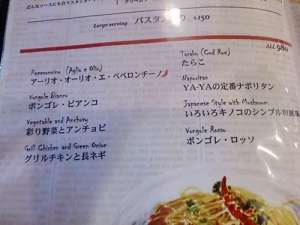 Large serving パスタ
+150
ALL 980
Peperoncino (Aglio e Olio)
アーリオ・オーリオ・エ・ペペロンチーノ
Vongole Bianco
ボンゴレ・ビアンコ
Vegetable and Anchovy
彩り野菜とアンチョビ
Grill Chicken and Green Onion
グリルチキンと長ネギ
Tarako (Cod Roe)
たらこ
Napolitan
YA-YAの定番ナポリタン
Japanese Style with Mushroom
いろいろキノコのシンプル和風
Vongole Rosso
ボンゴレ・ロッソ